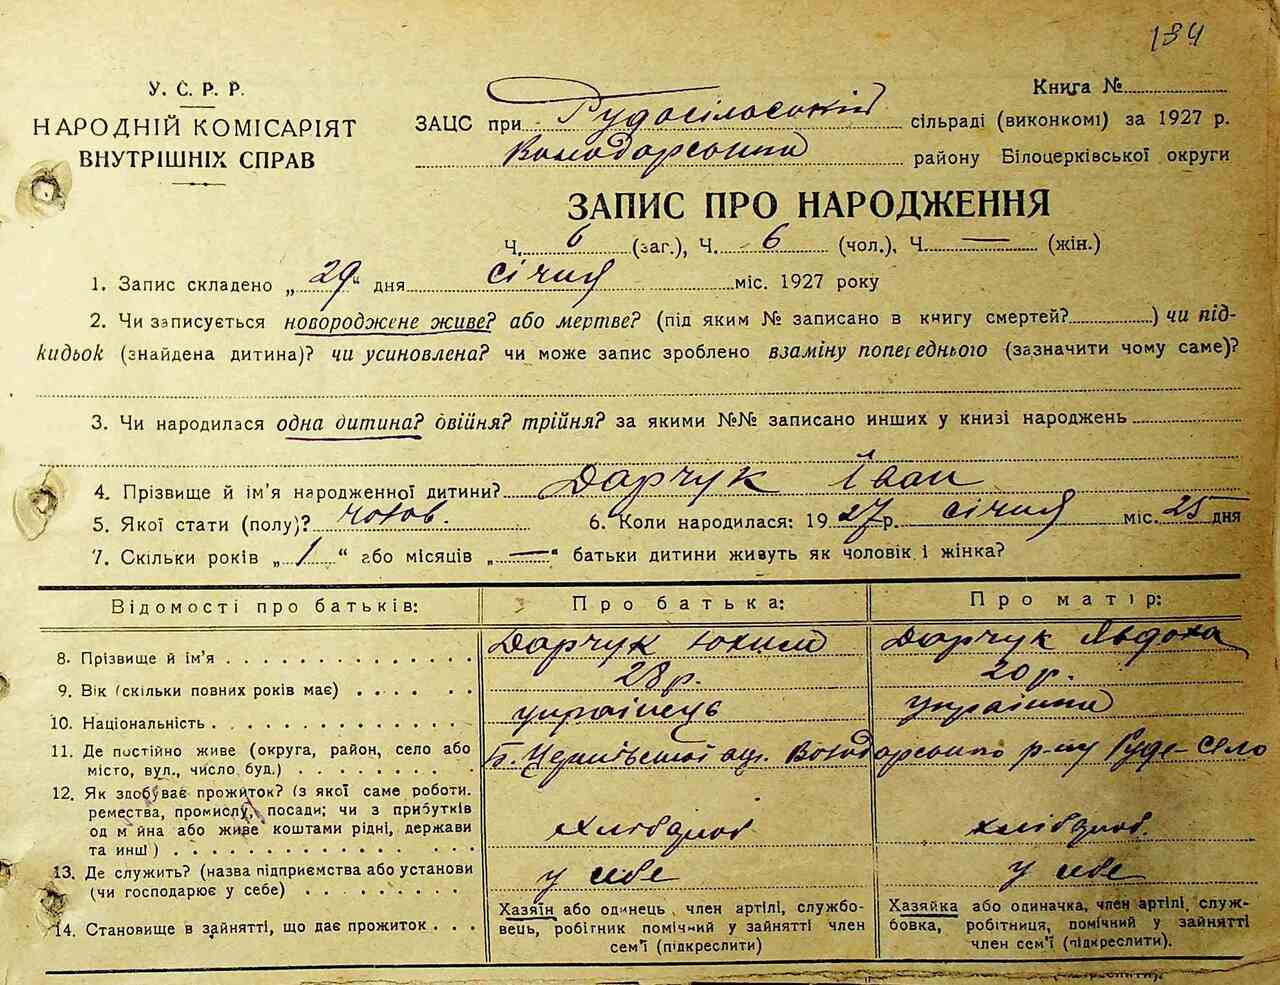 134
У. С. Р. Р.
НАРОДНІЙ КОМІСАРІЯТ
ВНУТРІШНІХ СПРАВ
Книга №
ЗАЦС при Рудосільській сільраді (виконкомі) за 1927 р.
Володарського району Білоцерківської округи
ЗАПИС ПРО НАРОДЖЕННЯ
Ч. 6 (заг.), Ч. 6 (чол.), Ч. — (жін.)
1. Запис складено „29“ дня січня міс. 1927 року
2. Чи записується новороджене живе? або мертве? (під яким № записано в книгу смертей?) чи під-
кидьок (знайдена дитина)? чи усиновлена? чи може запис зроблено взаміну попереднього (зазначити чому саме)?
3. Чи народилася одна дитина? двійня? трійня? за якими №№ записано инших у книзі народжень
4. Прізвище й ім'я народженної дитини? Дарчук Іван
5. Якої стати (полу)? чолов. 6. Коли народилася: 1927 р. січня міс. 25 дня
7. Скільки років „1“ або місяців „—“ батьки дитини живуть як чоловік і жінка?
Відомості про батьків: Про батька: Про матір:
8. Прізвище й ім'я Дарчук Юхим Дарчук Явдоха
9. Вік (скільки повних років має) 28 р. 20 р.
10. Національність українець українка
11. Де постійно живе (округа, район, село або
місто, вул., число буд.) Б. Церківської окр. Володарського р-ну Руде-Село
12. Як здобуває прожиток? (з якої саме роботи.
ремества, промислу, посади; чи з прибутків
од майна або живе коштами рідні, держави
та инш.) хлібороб хлібороб.
13. Де служить? (назва підприємства або установи
(чи господарює у себе) у себе у себе
14. Становище в зайнятті, що дає прожиток
Хазяїн або одинець, член артілі, службо-
вець, робітник помічний у зайнятті член
сем'ї (підкреслити)
Хазяйка або одиначка, член артілі, служ-
бовка, робітниця, помічний у зайнятті
член сем'ї (підкреслити).